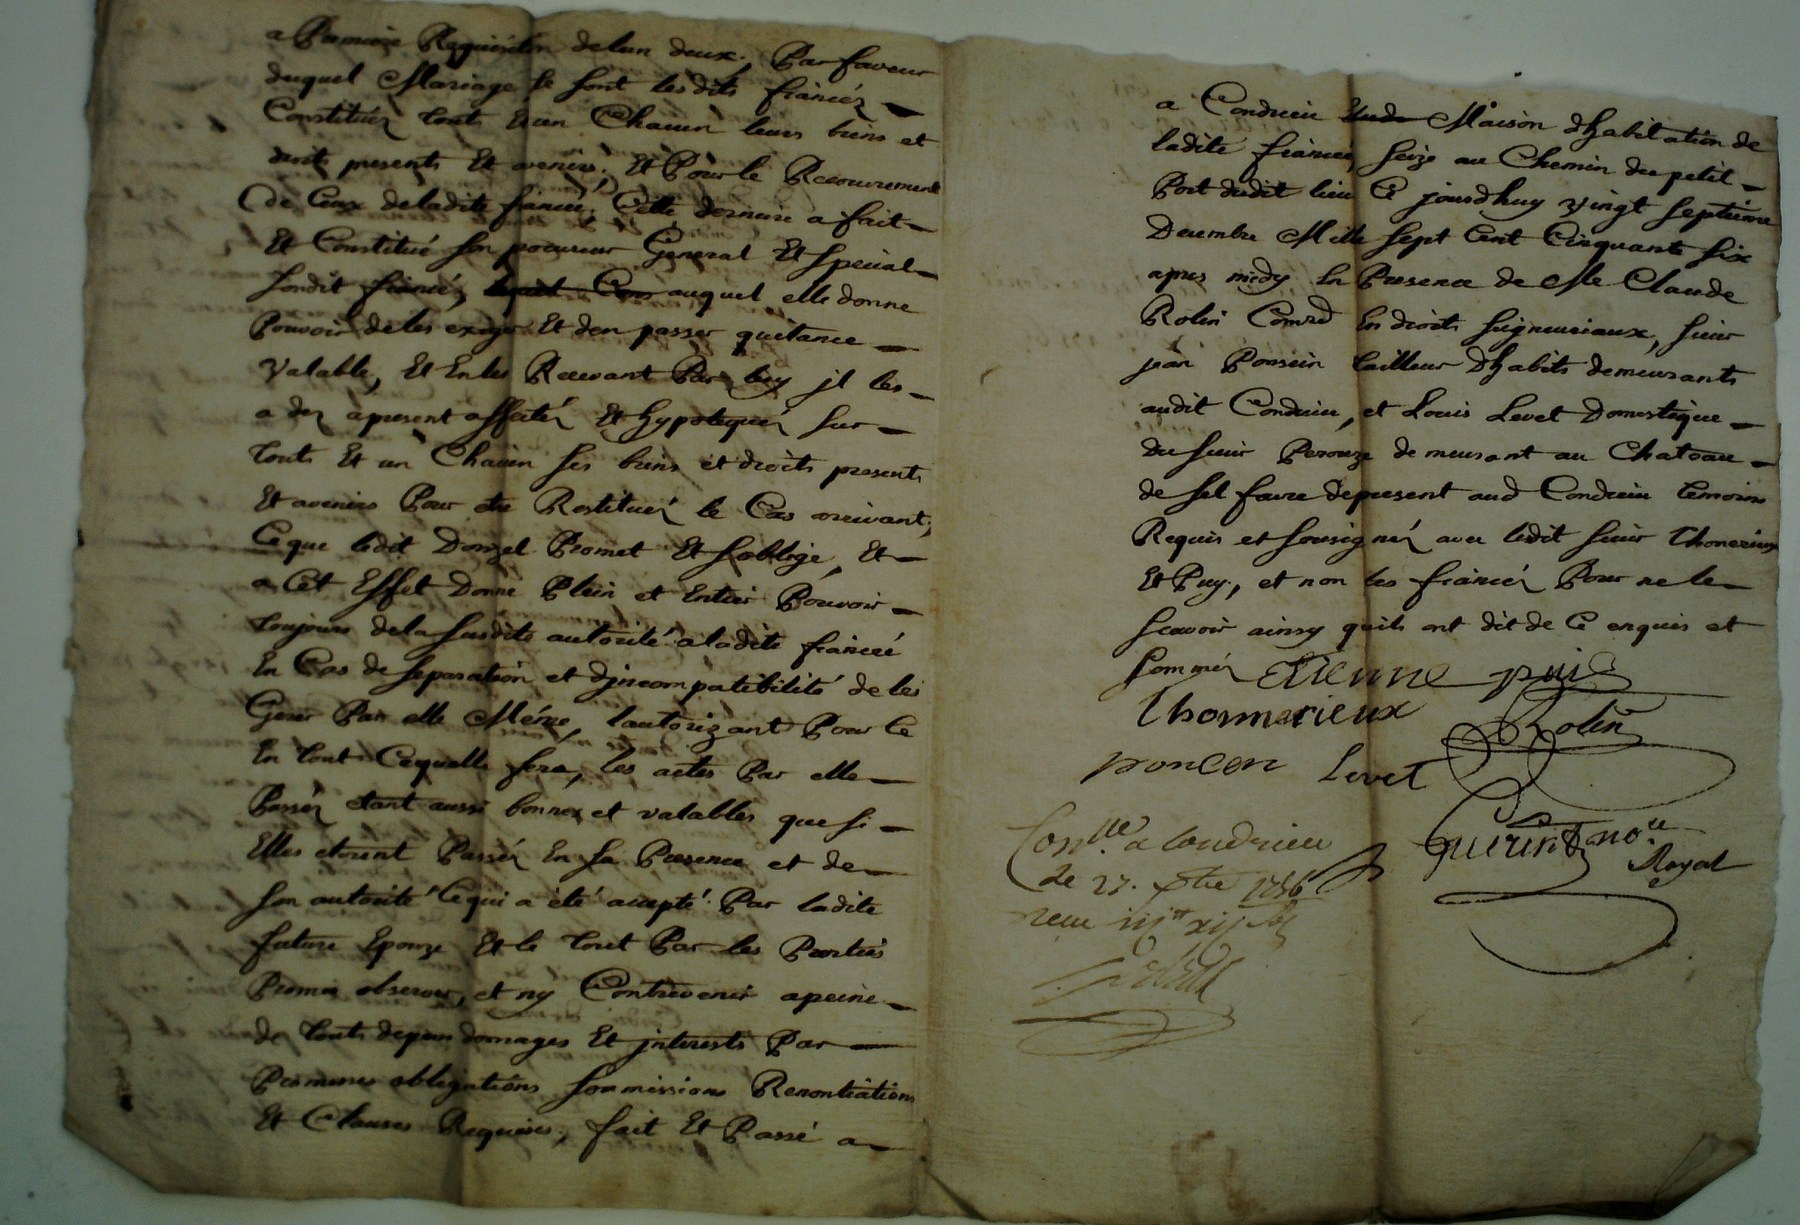 a Premiere Requisition delun deux. Par faveur
duquel Mariage se sont lesdits fiancéz
Constituéz tout et un Chacun leurs biens et
droits presents Et avenirs, Et Pour le Recouvrement
De Ceux deladite fiancée, Cette derniere a fait
Et Constitué son procureur General Et special
sondit fiancé, auquel elle donne
Pouvoir de les exiger Et den passer quitance
Valable, Et En les Recevant Par luy jl les
a dez apresent affectéz Et hypotequéz sur
touts Et un Chacun ses biens et droits presents
Et avenirs Pour etre Restituéz le Cas arrivant,
Ceque ledit Donzel Promet Et soblige, Et
a Cet Effet Donne Plein et Entier Pouvoir
toujours dela susdite autorité a ladite fiancée
En Cas de separation et djncompatibilité de les
Gerer Par elle Méme, lautorizant Pour Ce
En tout Cequelle fera, les actes Par elle
Passéz etant aussi bonnes et valables que si
Elles etoient Passéz En sa Presence et de
son autorité Ce qui a été accepté Par ladite
future Epouze Et le tout Par les Parties
Promis observer, et ny Contrevenir apeine
de touts depens domages Et jnterests Par
Promesses obligations sommissions Renontiations
Et Clauses Requises, fait Et Passé a
a Condrieu Maison dhabitation de
ladite fiancée, seize au Chemin du petit
Port dudit lieu Ce jourdhuy vingt septieme
Decembre Mille sept Cent Cinquante six
apres midy En Presence de Me Claude
Rolin Comre En droits seigneuriaux, sieur
jean Poncein tailleur dhabits demeurants
audit Condrieu, et Louis Levet Domestique
du sieur Perouze demeurant au Chateau
de sel favre depresent aud Condrieu temoins
Requis et sousignéz avec ledit sieur thonerieux
Et Puy, et non les fiancéz Pour ne le
scavoir ainsy quils ont dit de Ce enquis et
sommés Etienne puis
thonnerieux Rolin
poncen Levet
Conlle. a condrieu Guerin no.re
Le 27. Xbre 1756 Royal
receu iijtt xij s